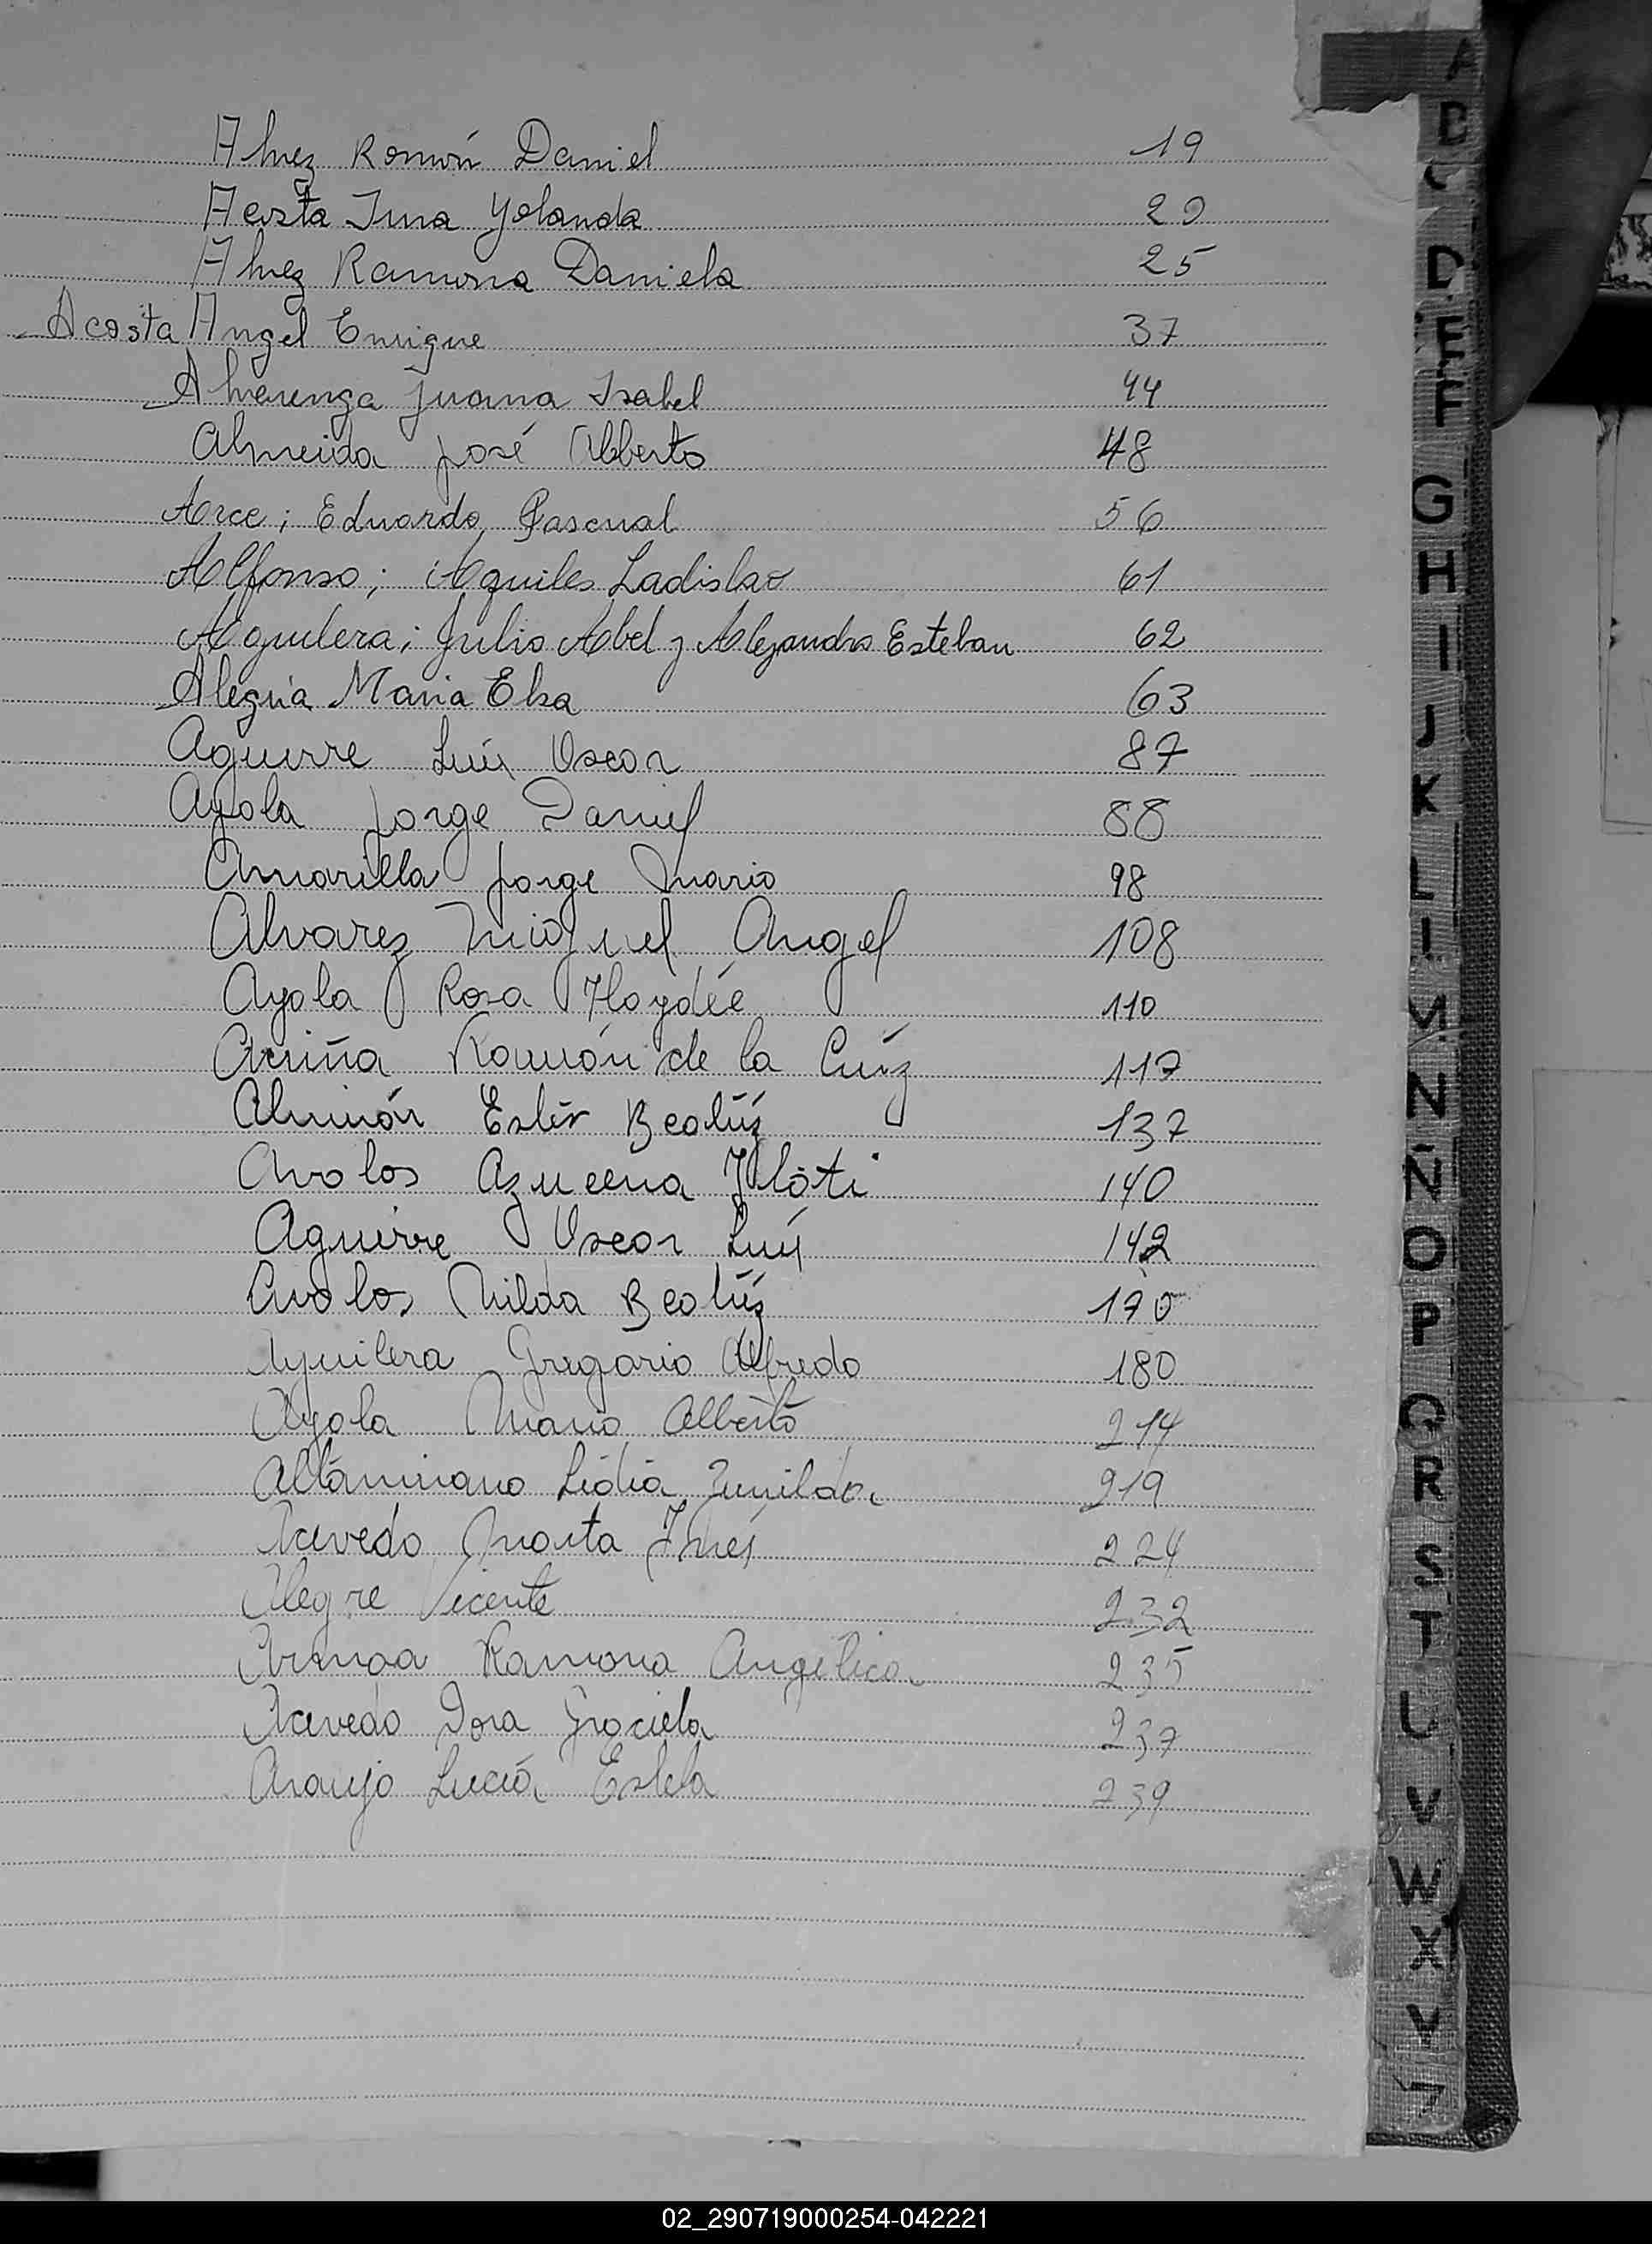 Alvez Román Daniel 19
Acosta Irma Yolanda 20
Alvez Ramona Daniela 25
Acosta Angel Enrique 37
Alvarenga Juana Isabel 44
Almeida José Alberto 48
Arce; Eduardo Pascual 56
Alfonso; Aquiles Ladislao 61
Aguilera; Julio Abel y Alejandro Esteban 62
Alegría María Elsa 63
Aguirre Luis Oscar 87
Ayala Jorge Daniel 88
Amarilla Jorge Mario 98
Alvarez Miguel Angel 108
Ayala Rosa Haydée 110
Ramón de la Cruz 117
Almirón Ester Beatriz 137
Avalos Azucena 140
Aguirre Oscar Luis 142
Avalos Nilda Beatriz 170
Aguilera Gregorio Alfredo 180
Ayala Mario Alberto 214
Altamirano Lidia Zunilda 219
Acevedo Marta Inés 224
Alegre Vicente 232
Armoa Ramona Angélica 235
Acevedo Dora Graciela 237
Araujo Lucía Estela 239
A
B
C
D
E
F
G
H
I
J
K
L
M
N
Ñ
O
P
Q
R
S
T
U
V
W
X
Y
Z
02_290719000254-042221